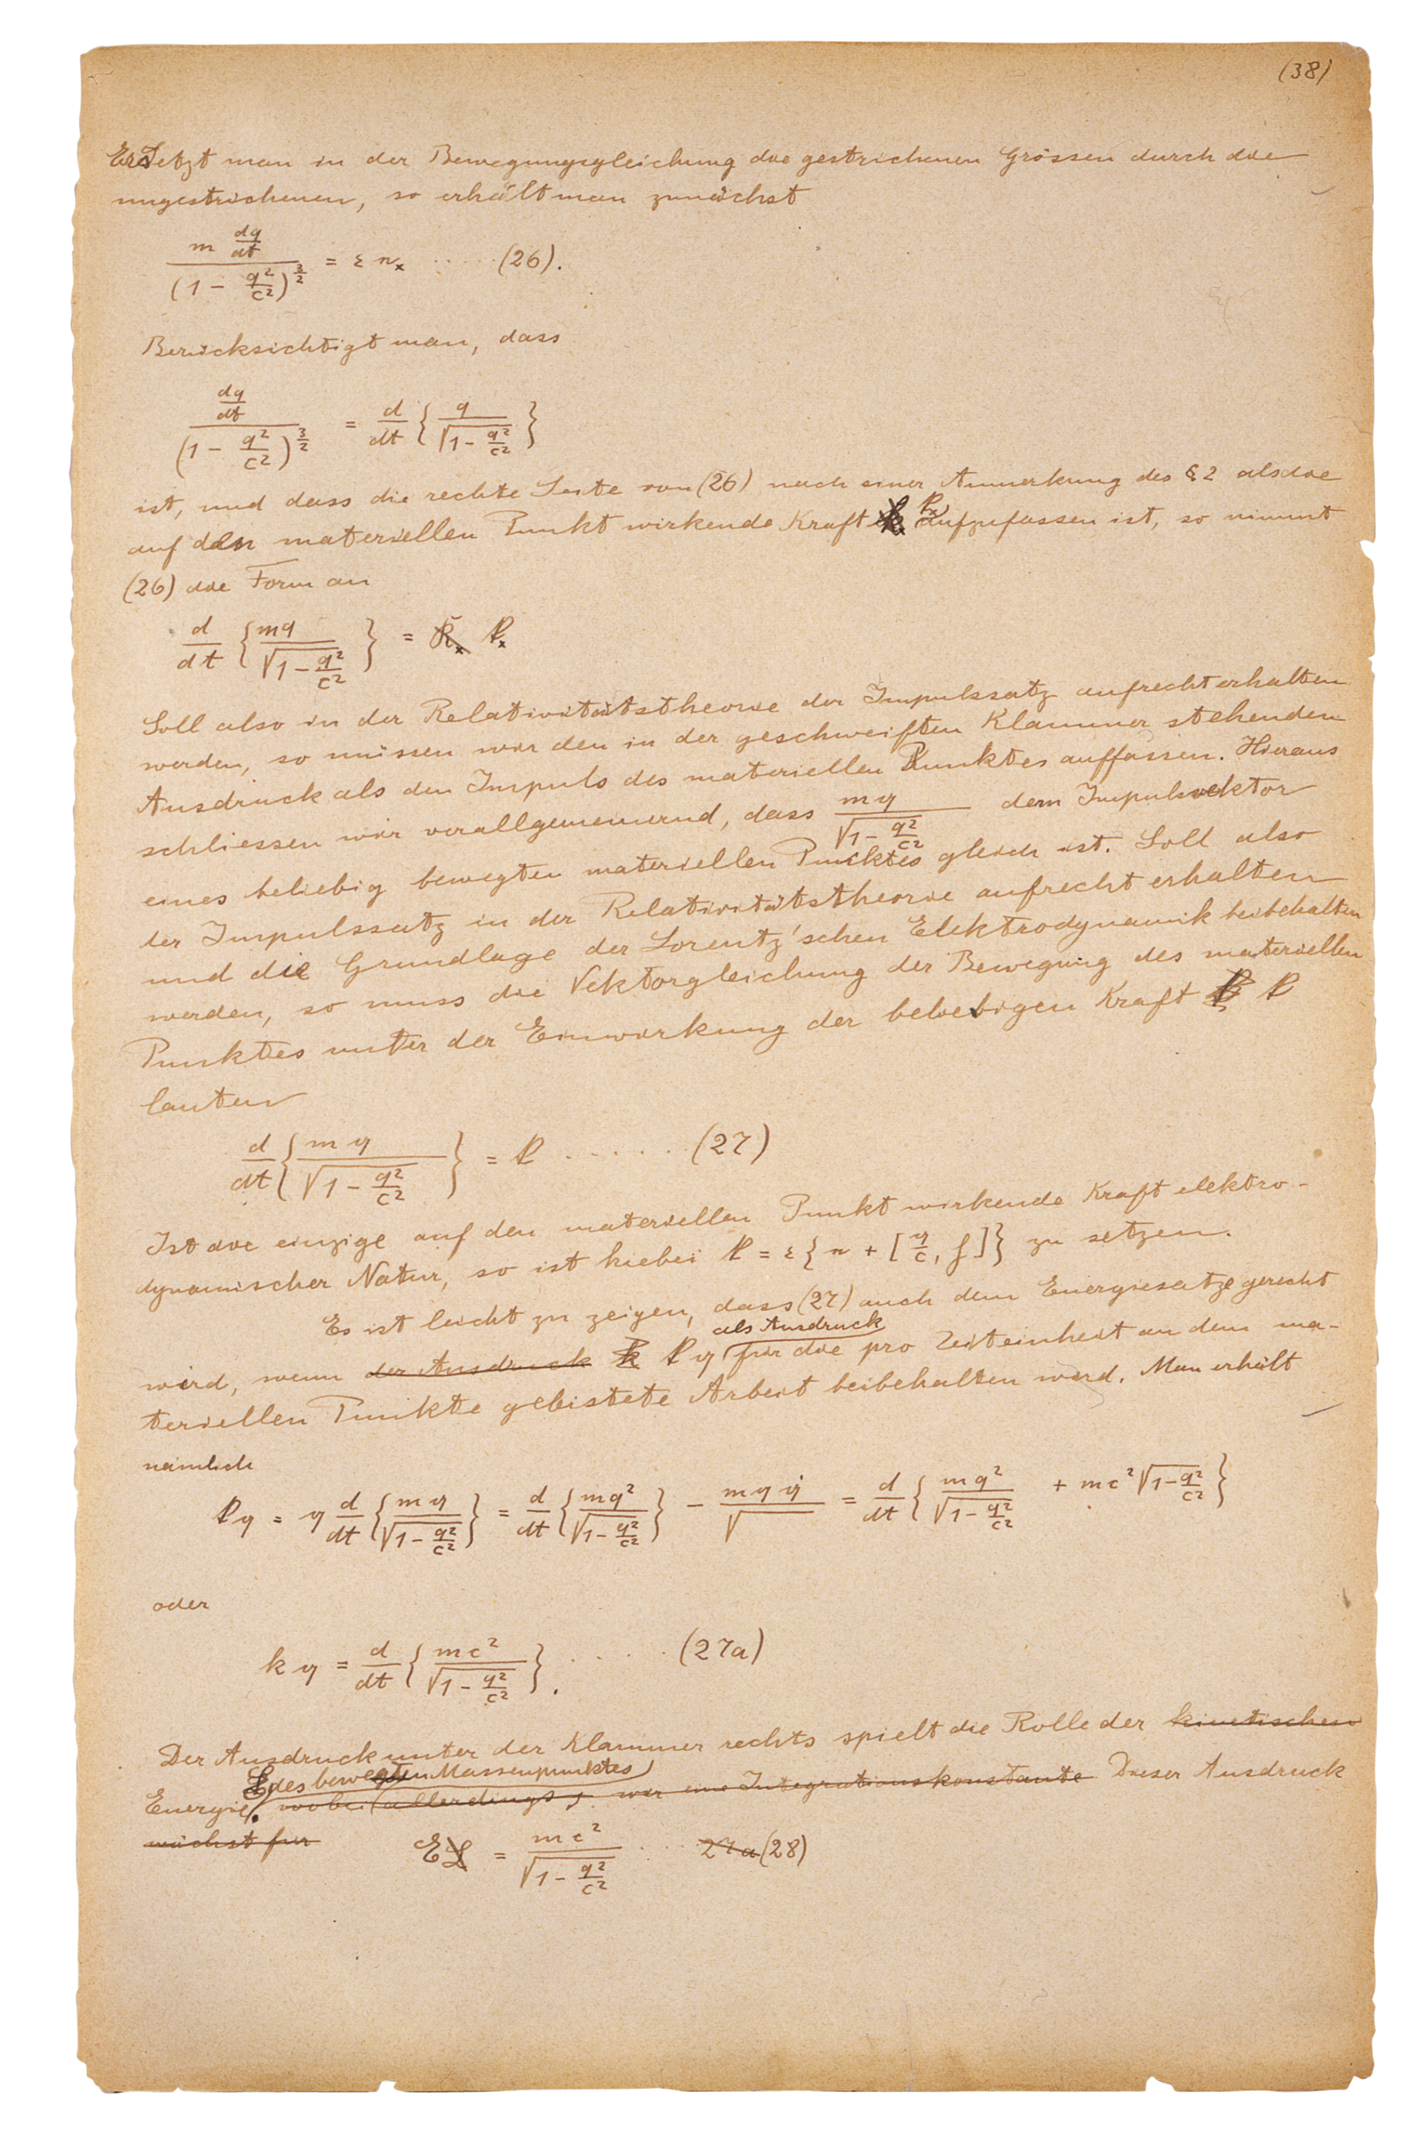 (38)
Ersetzt man in der Bewegungsgleichung die gestrichenen Grössen durch die
ungestrichenen, so erhält man zunächst
m dq/dt / (1 - q²/c²)^(3/2) = ε n_x ..... (26).
Berücksichtigt man, dass
dq/dt / (1 - q²/c²)^(3/2) = d/dt { q / √(1 - q²/c²) }
ist, und dass die rechte Seite von (26) nach einer Anmerkung des § 2 als die
auf den materiellen Punkt wirkende Kraft k_x aufzufassen ist, so nimmt
(26) die Form an
d/dt { mq / √(1 - q²/c²) } = K_x k_x
Soll also in der Relativitätstheorie der Impulssatz aufrecht erhalten
werden, so müssen wir den in der geschweiften Klammer stehenden
Ausdruck als den Impuls des materiellen Punktes auffassen. Hieraus
schliessen wir verallgemeinernd, dass mq / √(1 - q²/c²) dem Impulsvektor
eines beliebig bewegten materiellen Punktes gleich ist. Soll also
der Impulssatz in der Relativitätstheorie aufrecht erhalten
und die Grundlage der Lorentz'schen Elektrodynamik beibehalten
werden, so muss die Vektorgleichung der Bewegung des materiellen
Punktes unter der Einwirkung der beliebigen Kraft k
lauten
d/dt { mq / √(1 - q²/c²) } = k ...... (27)
Ist die einzige auf den materiellen Punkt wirkende Kraft elektro-
dynamischer Natur, so ist hiebei k = ε { n + [q/c, f] } zu setzen.
Es ist leicht zu zeigen, dass (27) auch dem Energiesatze gerecht
als Ausdruck
wird, wenn der Ausdruck k k q für die pro Zeiteinheit an dem ma-
teriellen Punkte geleistete Arbeit beibehalten wird. Man erhält
nämlich
k q = q d/dt { mq / √(1 - q²/c²) } = d/dt { mq² / √(1 - q²/c²) } - m q q̇ / √ = d/dt { mq² / √(1 - q²/c²) + mc² √(1 - q²/c²) }
oder
k q = d/dt { mc² / √(1 - q²/c²) } . ..... (27a)
Der Ausdruck unter der Klammer rechts spielt die Rolle der kinetischen
E des bewegten Massenpunktes
Energie. wobei (allerdings, wir eine Integrationskonstante Dieser Ausdruck
wächst für
E L = mc² / √(1 - q²/c²) ... 27a (28)